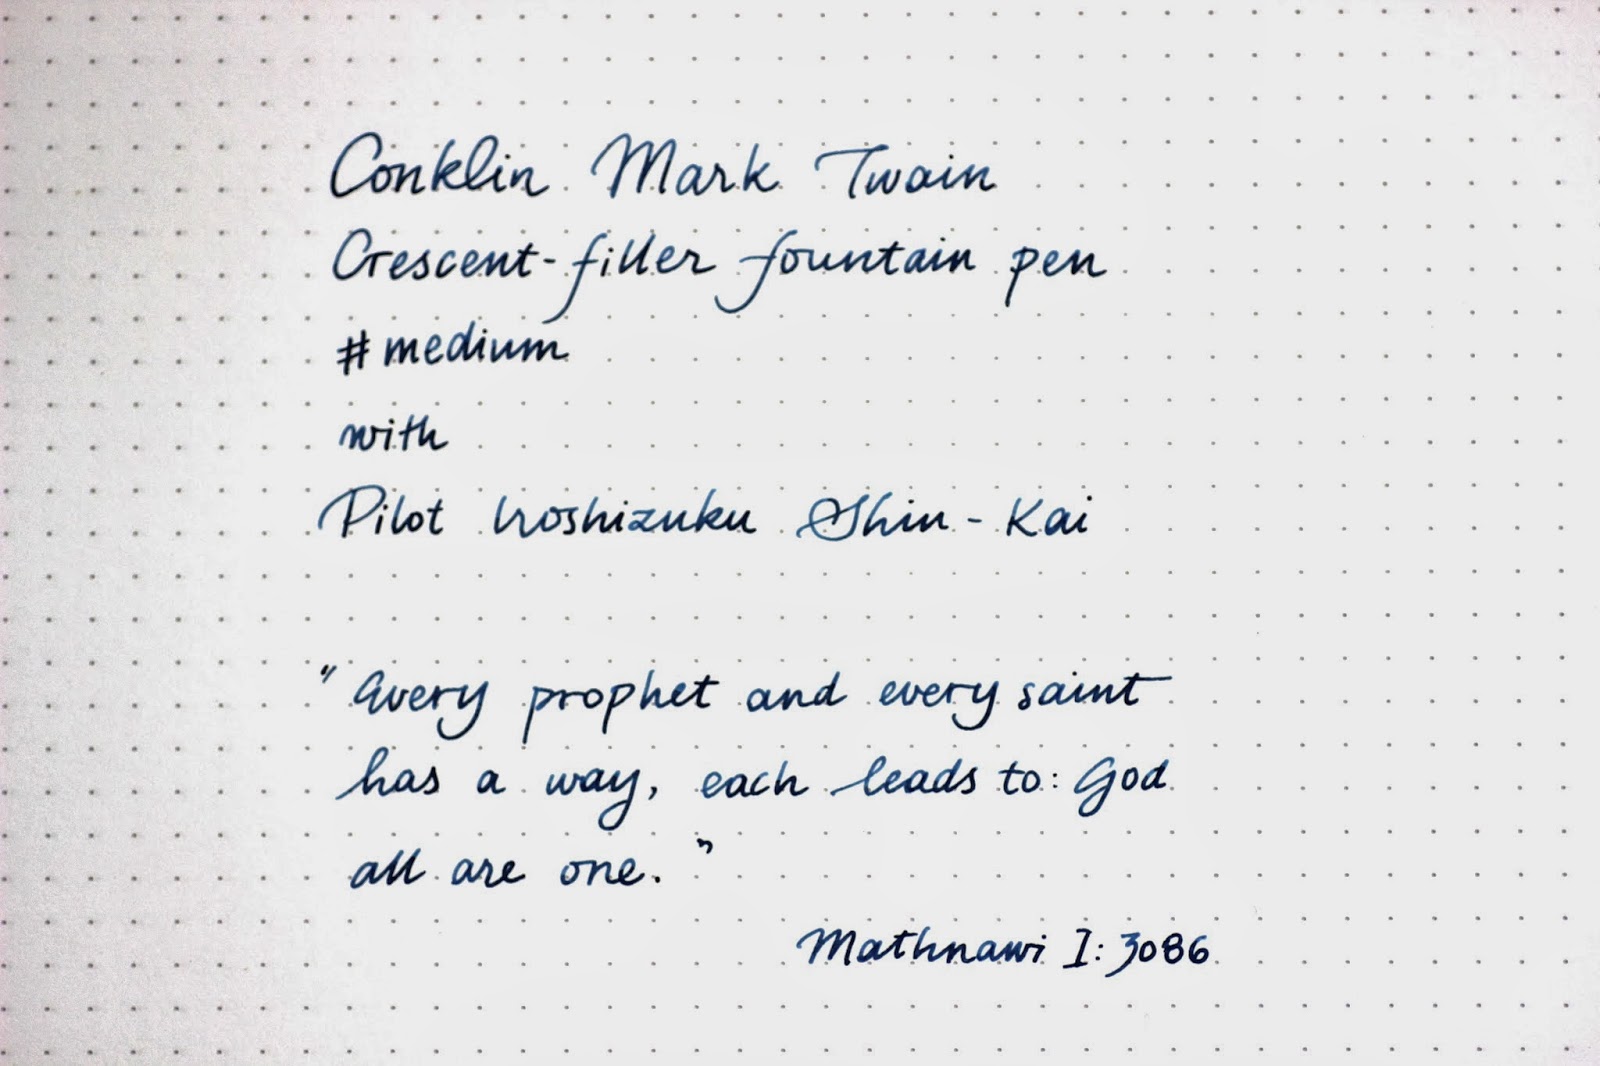 Conklin Mark Twain
Crescent-filler fountain pen
#medium
with
Pilot Iroshizuku Shin-Kai
"Every prophet and every saint
has a way, each leads to: God
all are one."
Mathnawi I:3086